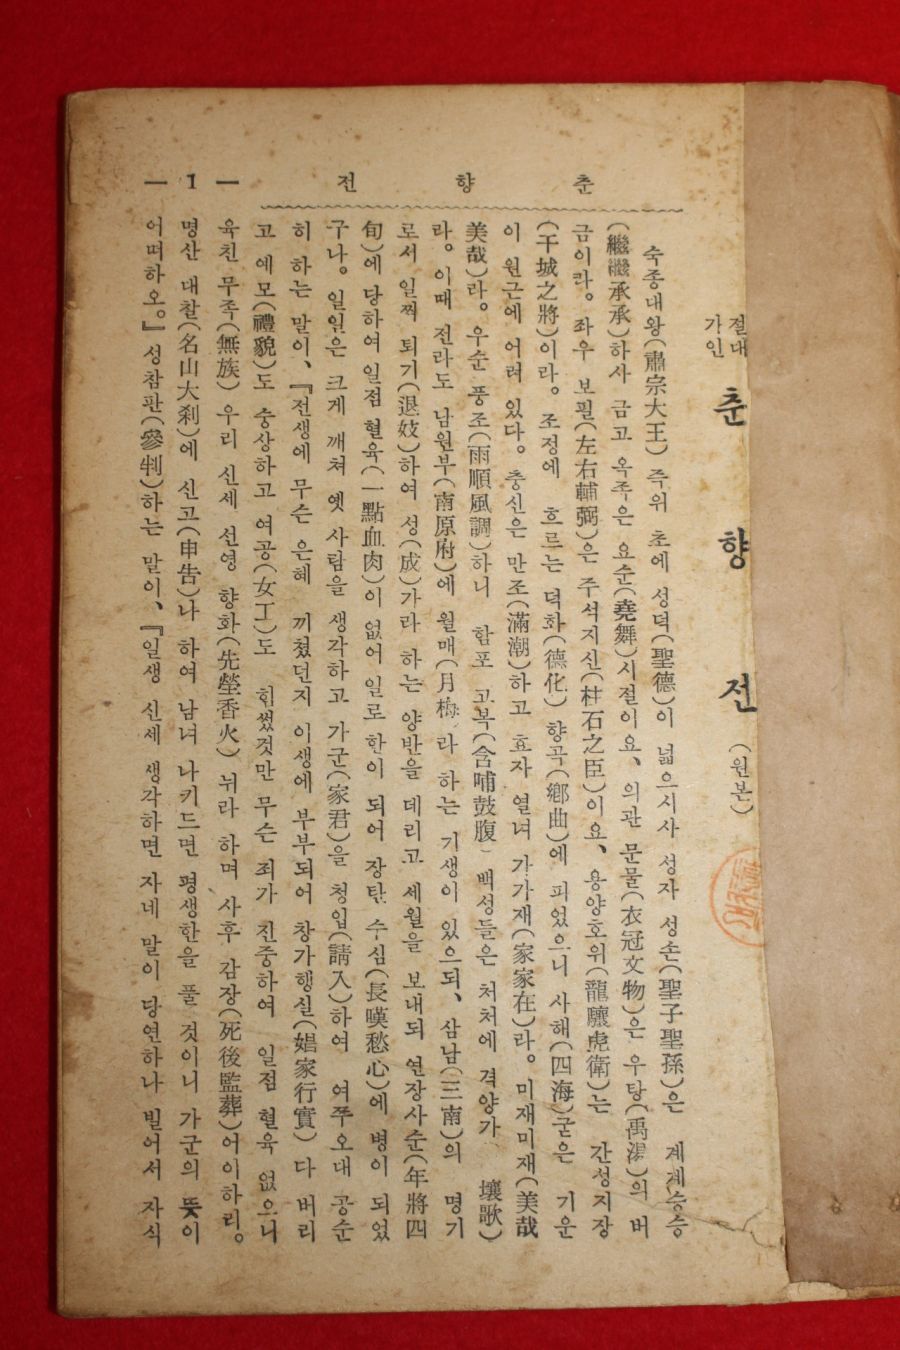 춘향전
— 1 —
절대
가인
춘향전 (원본)
숙종대왕(肅宗大王) 즉위 초에 성덕(聖德)이 넓으시사 성자 성손(聖子聖孫)은 계계승승
(繼繼承承)하사 금고 옥족은 요순(堯舞)시절이요、의관 문물(衣冠文物)은 우탕(禹湯)의 버
금이라。좌우 보필(左右輔弼)은 주석지신(柱石之臣)이요、용양호위(龍驤虎衛)는 간성지장
(干城之將)이라。조정에 흐르는 덕화(德化) 향곡(鄕曲)에 피었으니 사해(四海)굳은 기운
이 원근에 어려 있다。충신은 만조(滿潮)하고 효자 열녀 가가재(家家在)라。미재미재(美哉
美哉)라。우순 풍조(雨順風調)하니 함포 고복(含哺鼓腹) 백성들은 처처에 격양가 壤歌)
라。이때 전라도 남원부(南原府)에 월매(月梅 라 하는 기생이 있으되、삼남(三南)의 명기
로서 일찌 퇴기(退妓)하여 성(成)가라 하는 양반을 데리고 세월을 보내되 연장사순(年將四
旬)에 당하여 일점 혈육(一點血肉)이 없어 일로 한이 되어 장탄 수심(長嘆愁心)에 병이 되었
구나。일일은 크게 깨쳐 옛 사람을 생각하고 가군(家君)을 청입(請入)하여 여쭈오대 공순
히 하는 말이、『전생에 무슨 은혜 끼쳤던지 이생에 부부되어 창가행실(娼家行實) 다 버리
고 예모(禮貌)도 숭상하고 여공(女工)도 힘썼것만 무슨 죄가 진중하여 일점 혈육 없으니
육친 무족(無族) 우리 신세 선영 향화(先塋香火) 뉘라 하며 사후 감장(死後監葬)어이하리。
명산 대찰(名山大刹)에 신고(申告)나 하여 남녀 나키드면 평생한을 풀 것이니 가군의 뜻이
어떠하오。』성참판(參判)하는 말이、『일생 신세 생각하면 자네 말이 당연하나 빌어서 자식